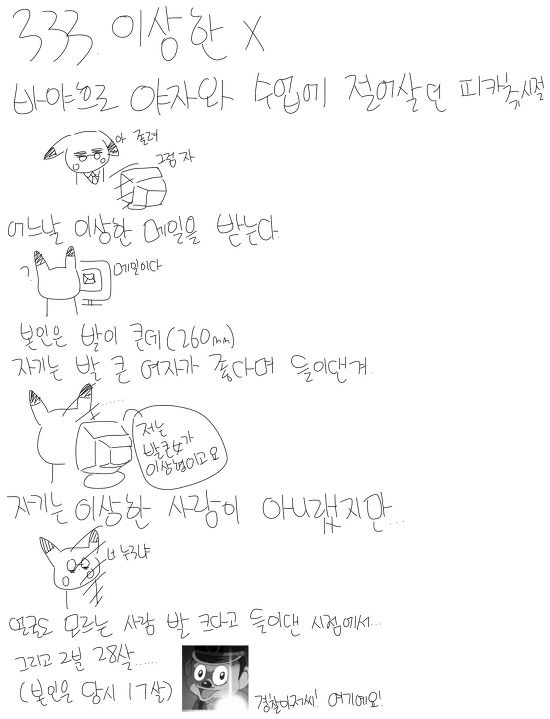 333. 이상한 X
바야흐로 야자와 수업에 절어살던 피카츄시절
아 졸려
그럼 자
어느날 이상한 메일을 받는다.
?
메일이다
본인은 발이 큰데(260mm)
자기는 발 큰 여자가 좋다며 들이댄겨.
......
저는
발큰女가
이상형이고요
자기는 이상한 사람이 아니랬지만...
너 누구냐
얼굴도 모르는 사람 발 크다고 들이댄 시점에서...
그리고 2분 28살......
(본인은 당시 17살)
경찰아저씨! 여기예요!